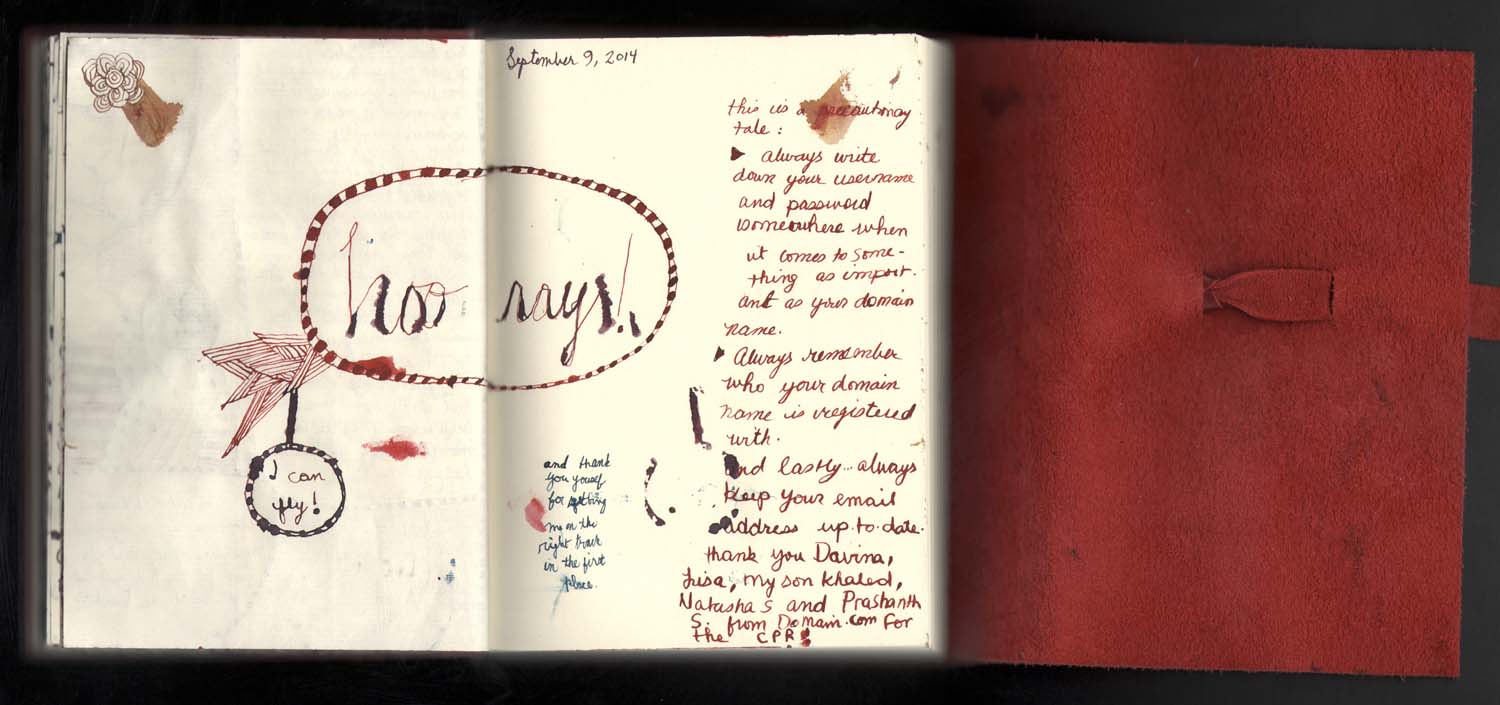 September 9, 2014
hoo rays!
I can
fly!
this is a precautionay
tale :
always write
down your username
and password
somewhere when
it comes to some-
thing as import-
ant as your domain
name.
Always remember
who your domain
name is registered
with.
And lastly... always
keep your email
address up-to-date.
thank you Davina,
Lisa, my son Khaled,
Natasha S and Prashanth
S. from Domain.com For
the CPR!
and thank
you youself
for getting
me on the
right track
in the first
place.